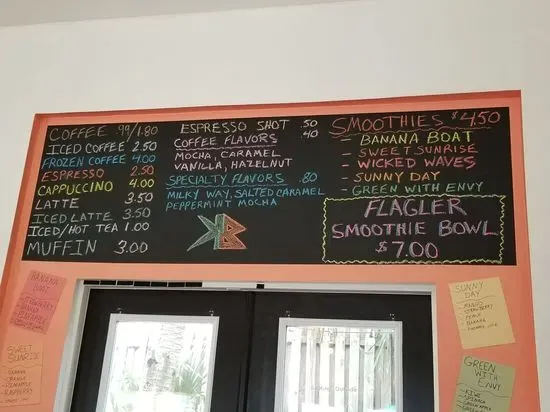 COFFEE .99/1.80
ICED COFFEE 2.50
FROZEN COFFEE 4.00
ESPRESSO 2.50
CAPPUCCINO 4.00
LATTE 3.50
ICED LATTE 3.50
ICED/HOT TEA 1.00
MUFFIN 3.00
ESPRESSO SHOT .50
COFFEE FLAVORS .40
MOCHA, CARAMEL
VANILLA, HAZELNUT
SPECIALTY FLAVORS .80
MILKY WAY, SALTED CARAMEL
PEPPERMINT MOCHA
KB
SMOOTHIES $4.50
- BANANA BOAT
- SWEET SUNRISE
- WICKED WAVES
- SUNNY DAY
- GREEN WITH ENVY
FLAGLER
SMOOTHIE BOWL
$7.00
BANANA
BOAT
SWEET
SUNRISE
BANANA
ORANGE
PINEAPPLE
RASPBERRY
SUNNY
DAY
MANGO
STRAWBERRY
BANANA
GREEN
WITH
ENVY
- KIWI
- SPINACH